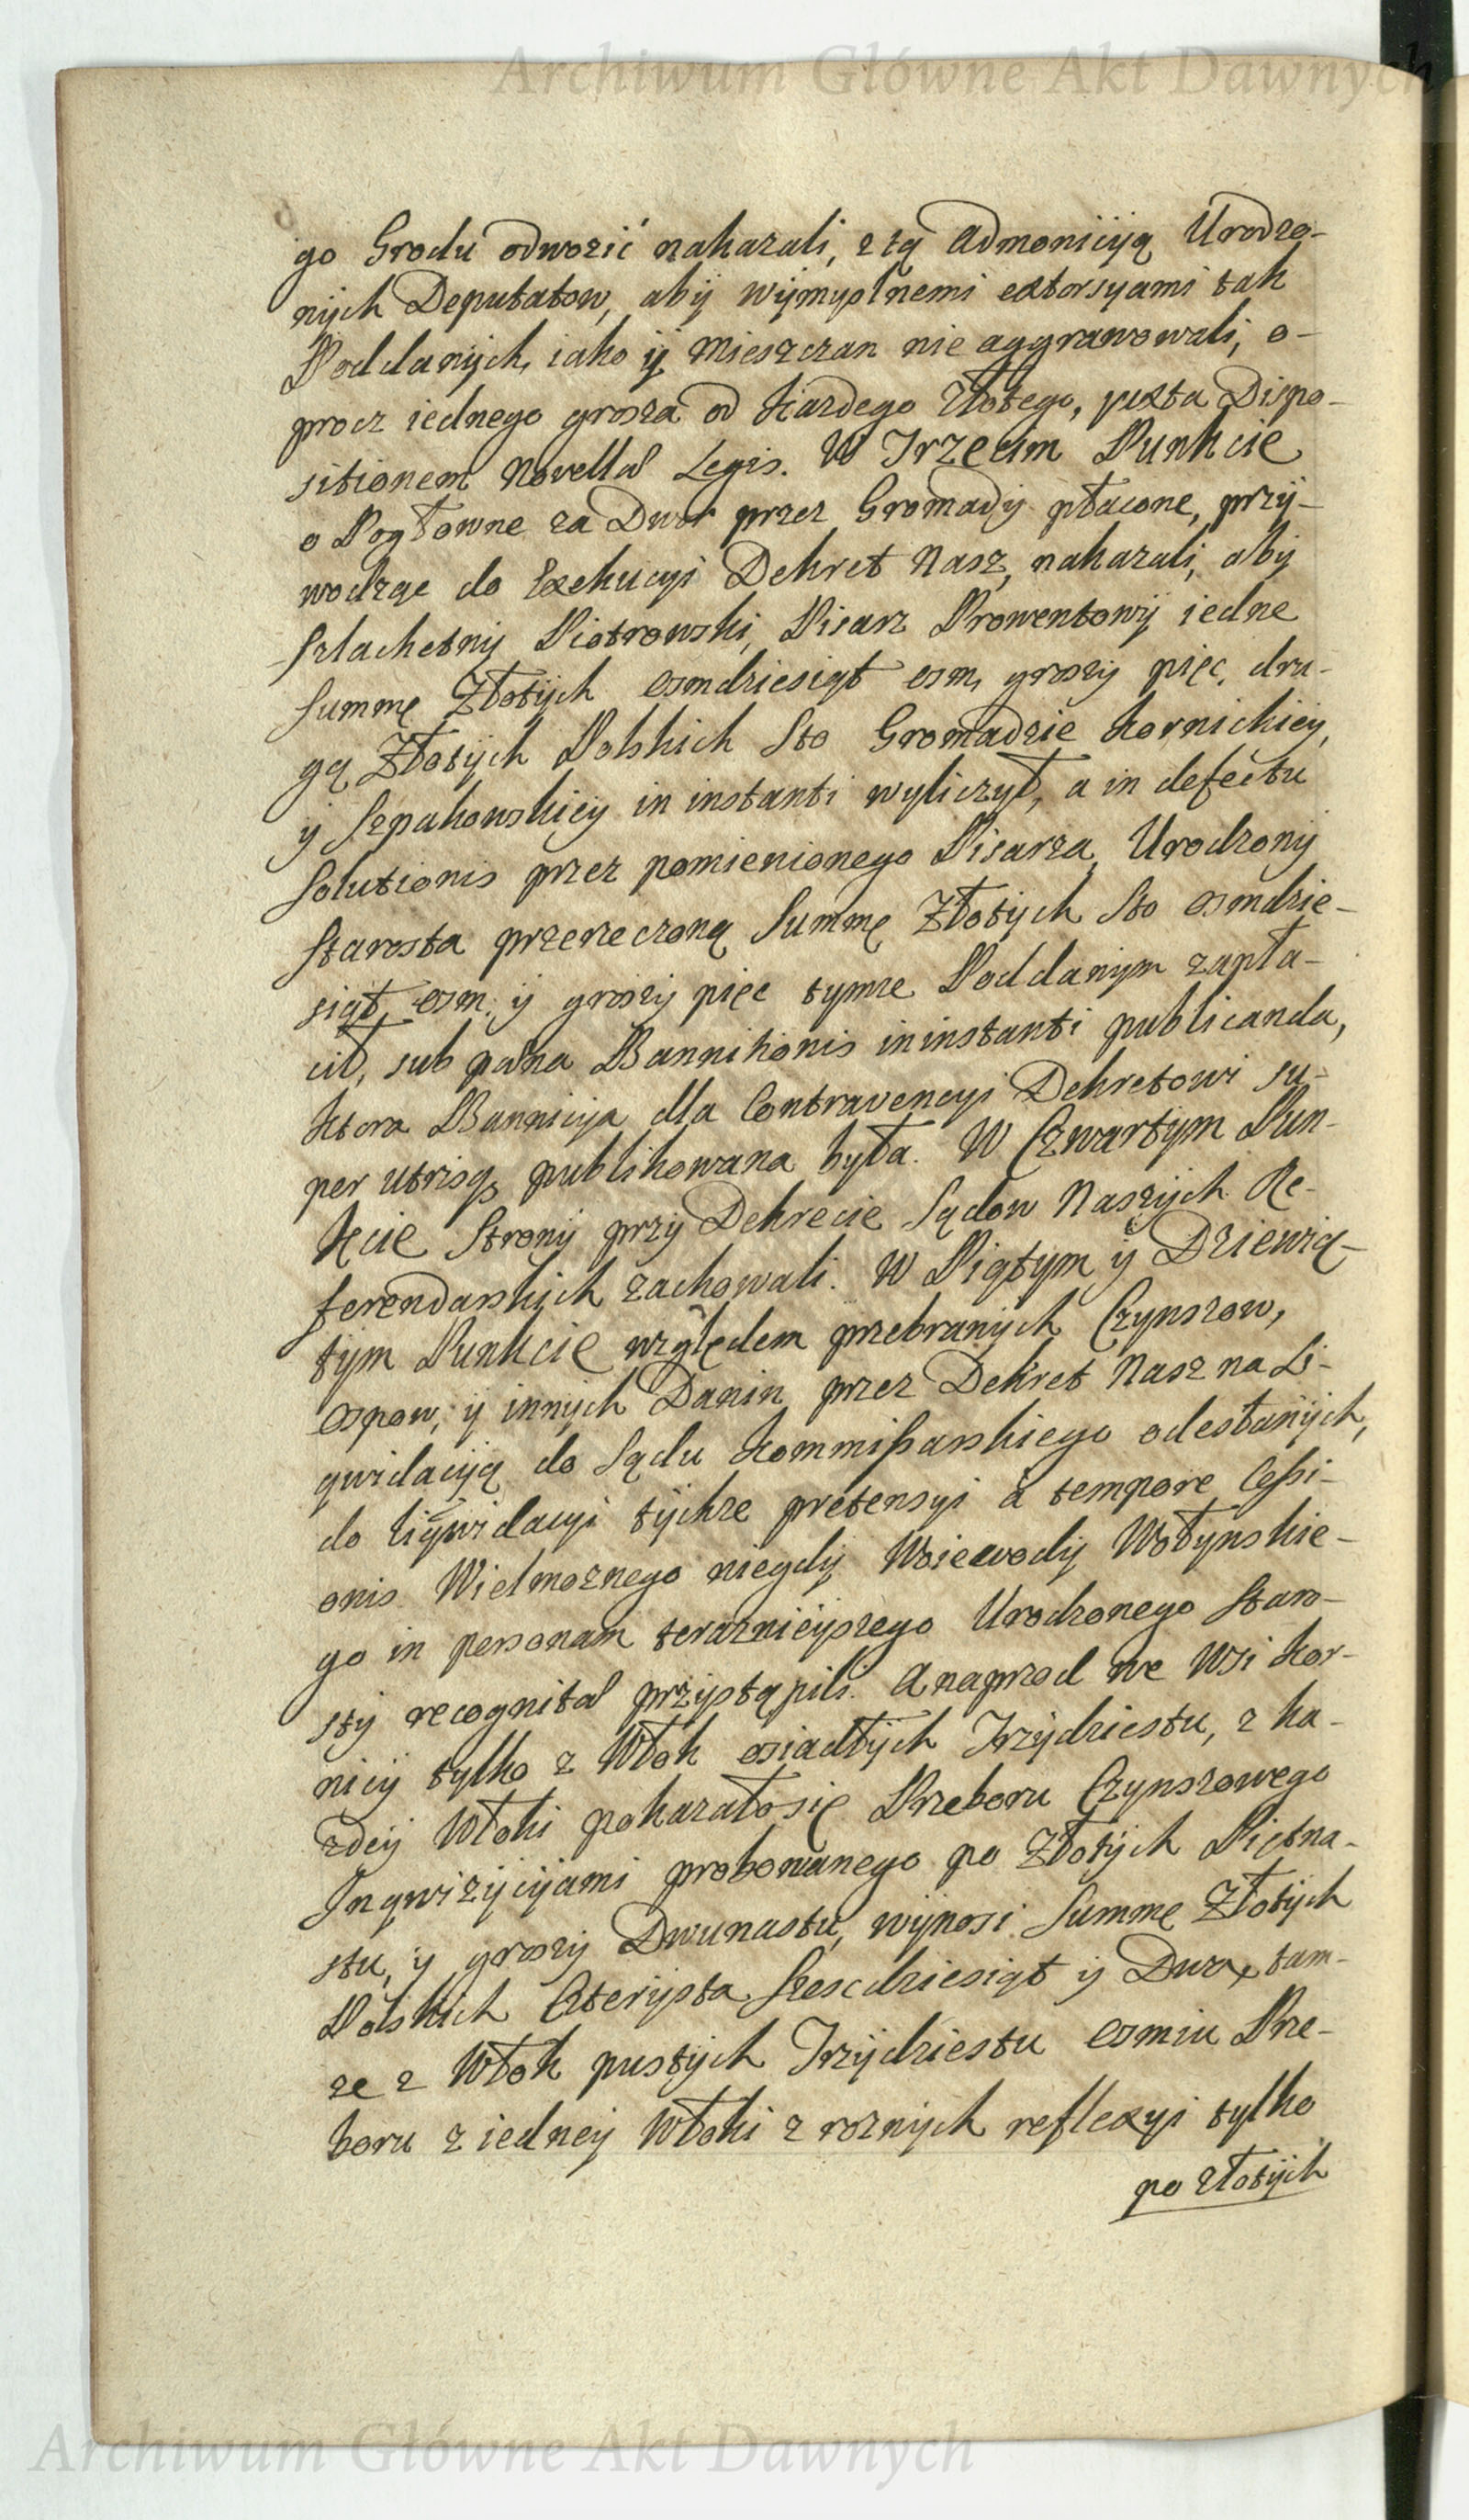 Archiwum Główne Akt Dawnych
go Grodu odwozić nakazali, z tą admonicyą Urodzo-
nych Deputatow, aby wymyslnemi extorsyami tak
Poddanych, iako y Mieszczan nie aggrawowali, o-
procz iednego grosza od Każdego Złotego, juxta Dispo-
sitionem Novellæ Legis. W Trzecim Punkcie
o Pogłowne za Dwor przez Gromady płacone, przy-
wodząc do Exekucyi Dekret Nasz, nakazali, aby
Szlachetny Piotrowski, Pisarz Prowentowy iedne
Summę Złotych osmdziesiąt osm, groszy pięc, dru-
gą Złotych Polskich Sto Gromadzie Kornickiey,
y Szpakowskiey in instanti wyliczył, a in defectu
Solutionis przez pomienionego Pisarza, Urodzony
Starosta przerzeczoną Summę Złotych Sto osmdzie-
siąt osm, y groszy pięc tymze Poddanym zapła-
cił, sub pœna Bannitionis in instanti publicanda,
Ktora Bannicya dla Contravencyi Dekretowi su-
per utrisq3 publikowana była. W Czwartym Pun-
kcie Strony przy Dekrecie Sądow Naszych Re-
ferendarskich zachowali. W Piątym y Dziewią-
tym Punkcie względem przebranych Czynszow,
ospow, y innych Danin przez Dekret Nasz na Li-
qwidacyą do Sądu Kommissarskiego odesłanych,
do liqwidacyi tychze pretensyi à tempore Cessi-
onis Wielmoznego niegdy Woiewody Wołynskie-
go in personam teraznieyszego Urodzonego Staro-
sty recognitæ przystąpili. A naprzod we Wsi Kor-
nicy tylko z Włok osiadłych Trzydziestu, z ka-
zdey Włoki pokazałosię Przeboru Czynszowego
Inqwizycyiami probowanego po Złotych Piętna-
stu, y groszy Dwunastu, wynosi Summę Złotych
Polskich Czterysta Szescdziesiąt y Dwa, tam-
ze z Włok pustych Trzydziestu osmiu Prze-
boru z iedney Włoki z roznych reflexyi tylko
po złotych
Archiwum Główne Akt Dawnych